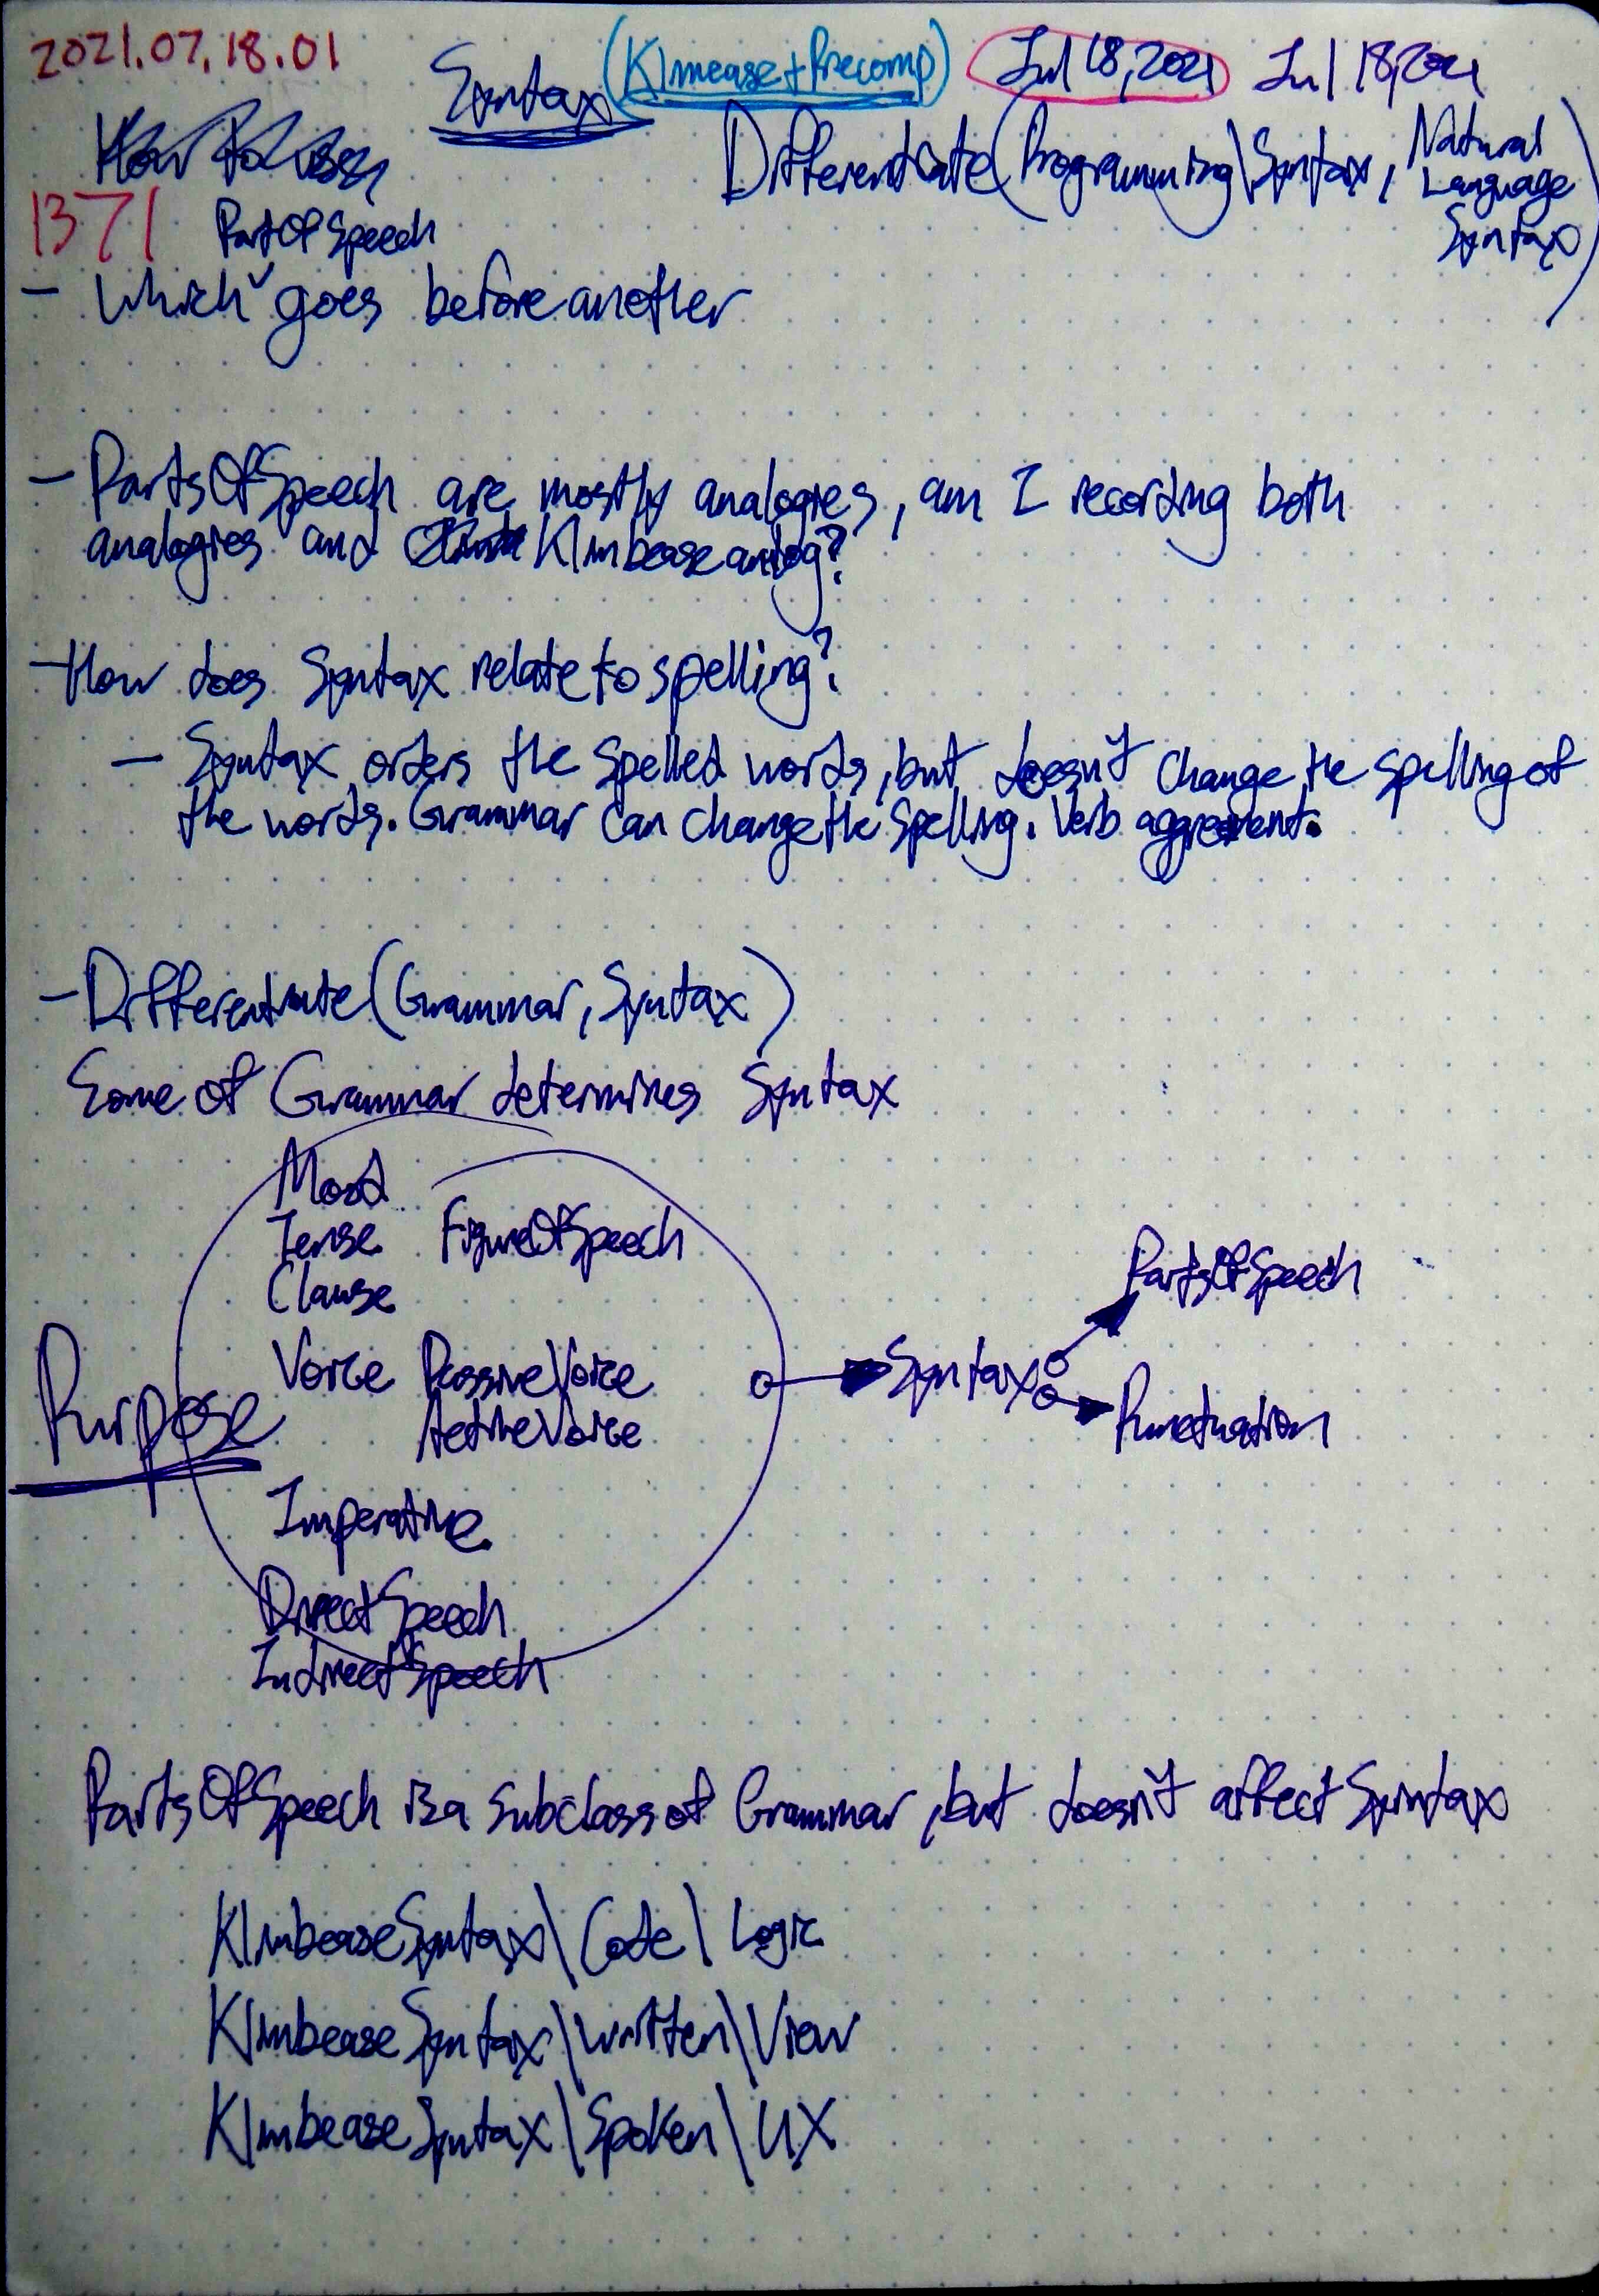 2021.07.18.01
Syntax (Klmease+Precomp) Jul 18, 2021 Jul 18, 2021
How to use
Differentiate(Programming\Syntax, Natural
Language
Syntax)
1371
PartOfSpeech
- Which goes before another
- PartsOfSpeech are mostly analogies, am I recording both
analogies and Klmbease analog?
- How does Syntax relate to spelling?
- Syntax orders the spelled words, but doesn't change the spelling of
the words. Grammar can change the spelling. Verb aggreement.
- Differentiate(Grammar, Syntax)
Some of Grammar determines Syntax
Mood
Tense FigureOfSpeech
Clause
Voice PassiveVoice
ActiveVoice
Purpose
Imperative
DirectSpeech
IndirectSpeech
Syntax
PartsOfSpeech
Punctuation
PartsOfSpeech is a subclass of Grammar, but doesn't affect Syntax
KlmbeaseSyntax\Code\Logic
KlmbeaseSyntax\Written\View
KlmbeaseSyntax\Spoken\UX